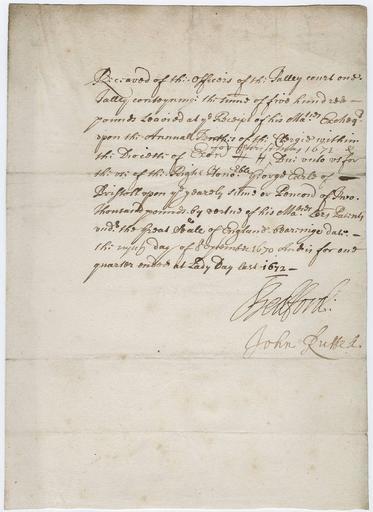 Received of the Officers of the Talley court one
Talley conteyning the sume of five hundred
pounds Leavied at ye Receipt of his Maties Excheqr
upon the Annuall Tenths of the Clergie within
for
1671 &
the Diocess of Exon # Due unto us for
the use of the Right Honoble George Earle of
Bristoll upon ye yearely sume or Pencon of Two
thousand pounds by vertue of his Maties Lers Patents
undr the Great Seale of England beareinge date
the day of September 1670 And is for one
quarter ended at Lady Day last 1672
Bedford:
John Russell.